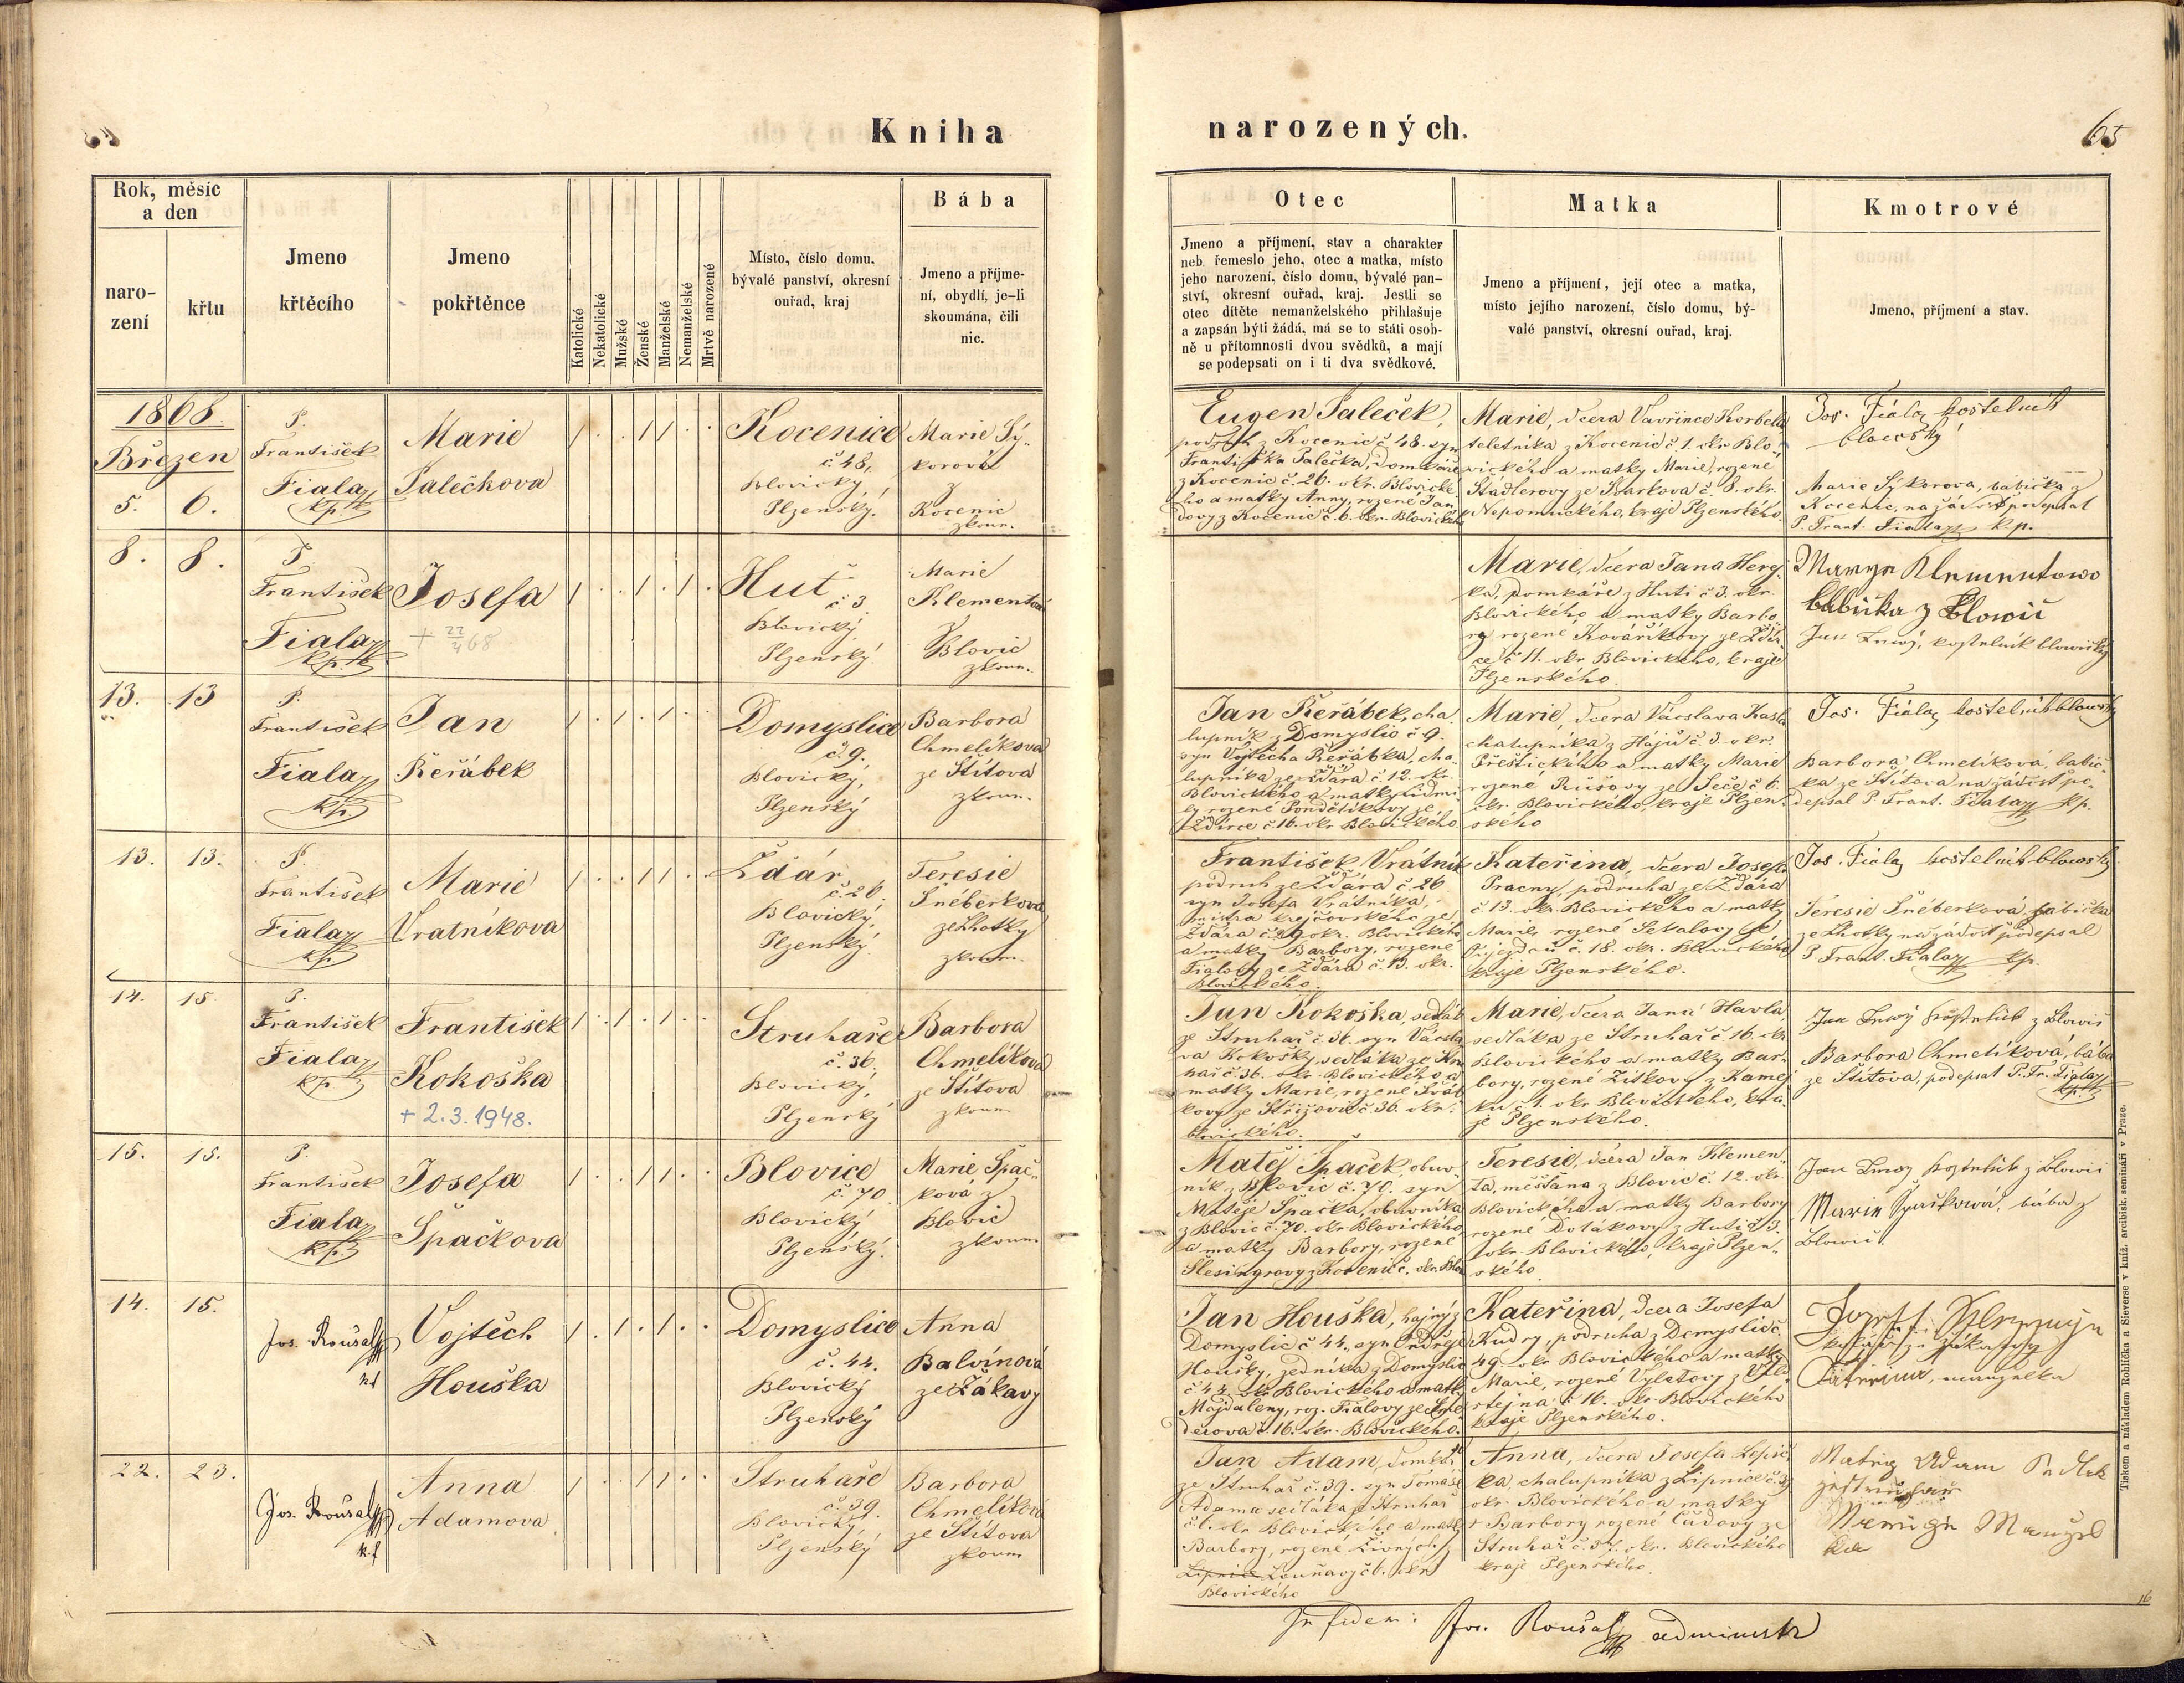 Kniha
narozených.
65
Rok, měsíc
a den
naro-
zení
křtu
Jmeno
křtěcího
Jmeno
pokřtěnce
Katolické
Nekatolické
Mužské
Ženské
Manželské
Nemanželské
Mrtvě narozené
Místo, číslo domu,
bývalé panství, okresní
ouřad, kraj
Bába
Jmeno a příjme-
ní, obydlí, je-li
skoumána, čili
nic.
Otec
Jmeno a příjmení, stav a charakter
neb řemeslo jeho, otec a matka, místo
jeho narození, číslo domu, bývalé pan-
ství, okresní ouřad, kraj. Jestli se
otec dítěte nemanželského přihlašuje
a zapsán býti žádá, má se to státi osob-
ně u přítomnosti dvou svědků, a mají
se podepsati on i ti dva svědkové.
Matka
Jmeno a příjmení, její otec a matka,
místo jejího narození, číslo domu, bý-
valé panství, okresní ouřad, kraj.
Kmotrové
Jmeno, příjmení a stav.
1868.
Březen
5. 6.
P.
František
Fiala
kp.
Marie
Palečkova
Kocenice
č. 48,
Blovický,
Plzenský.
Marie Sý-
korová
z
Kocenic
zkoum.
Eugen Paleček,
podruh z Kocenic č. 48. syn
Františka Palečka, domkáře
z Kocenic č. 26. okr. Blovické-
ho a matky Anny, rozené Jan
dovy z Kocenic č. 6. okr. Blovického
Marie, dcera Vavřince Korbela
z Kocenic č. 1. okr. Blo-
vického a matky Marie, rozené
Stádlerovy ze Kvarkova č. 8. okr.
Nepomuckého, kraje Plzenského.
Jos. Fiala kostelník
Marie Sýkorova, babička z
Kocenic, na žádost podepsal
P. Frant. Fiala kp.
8. 8.
P.
František
Fiala
kp.
Josefa
+ 22/4 68
Huť
č. 3
Blovický
Plzenský
Marie
Klementová
z
Blovic
zkoum.
Marie, dcera Jana Herej-
ka, domkáře z Huti č. 3. okr.
Blovického a matky Barbo-
ry rozené Kovaříkovy ze Ždír-
ce č. 11. okr. Blovického, kraje
Plzenského.
Marye Klementowo
babička z Blowic
Jan kostelník blowický
13. 13
P.
František
Fiala
kp.
Jan
Řeřábek
Domyslice
č. 9.
Blovický,
Plzenský
Barbora
Chmelíková
ze Štítova
zkoum.
Jan Řeřábek, cha-
lupník z Domyslic č. 9.
syn Vojtěcha Řeřábka, cha-
lupníka ze Ždára č. 12. okr.
Blovického a matky Lidmi-
ly rozené Pondělíkovy ze
Ždírce č. 16. okr. Blovického.
Marie, dcera Václava
chalupníka z Hájů č. 3. okr.
Přeštického a matky Marie
rozené ze Seče č. 6.
okr. Blovického, kraje Plzen-
ského
Jos. Fiala kostelník blowský
Barbora Chmelíková, babič-
ka ze Štítova na žádost po-
depsal P. Frant. Fiala kp.
13. 13.
P.
František
Fiala
kp.
Marie
Vratníkova
Ždár
č. 26.
Blovický,
Plzenský.
Teresie
Šnéberková
ze Lhotky
zkoum.
František Vrátník
podruh ze Ždára č. 26
syn Josefa Vrátníka,
mistra krejčovského ze
Ždára č. 29 okr. Blovického,
a matky Barbory, rozené
Fialovy ze Ždára č. 13. okr.
Blovického.
Kateřina, dcera Josefa
Pracny, podruha ze Ždára
č. 13. okr. Blovického a matky
Marie, rozené Sekalovy ze
č. 18. okr. Blovického
kraje Plzenského.
Jos. Fiala kostelník blowský
Teresie Šnéberková babička
ze Lhotky na žádost podepsal
P Frant. Fiala kp.
14. 15.
P.
František
Fiala
kp
František
Kokoška
+ 2.3.1948.
Struhaře
č. 36.
Blovický,
Plzenský
Barbora
Chmelíková
ze Štítova
zkoum
Jan Kokoška, sedlák
ze Struhař č. 36. syn Václa-
va Kokošky, sedláka ze Stru
hař č. 36. okr. Blovického a
matky Marie, rozené
kovy ze Střížovic č. 36. okr.
blovického.
Marie, dcera Jana Havla,
sedláka ze Struhař č. 16. okr.
Blovického a matky Bar-
bory, rozené Žitkovy z Kamej-
ku č. 1. okr. Blovického, kra-
je Plzenského.
Jan kostelník z Blowic
Barbora Chmelíková, bába
ze Štítova, podepsal P. Fr. Fiala
kp.
15. 15.
P.
František
Fiala
kp.
Josefa
Špačkova
Blovice
č. 70
Blovický
Plzenský.
Marie Špač-
ková z
Blovic
zkoum
Matěj Špaček, obuv-
ník z Blovic č. 70. syn
Matěje Špačka, obuvníka
z Blovic č. 70. okr. Blovického,
a matky Barbory, rozené
Šlesingrovy z Kocenic č. okr. Blo
Teresie, dcera Jan Klemen-
ta, měšťana z Blovic č. 12. okr.
Blovického a matky Barbory
rozené Dolákovy z Huti č. 3.
okr. Blovického, kraje Plzen-
ského.
Jan kostelník z Blowic
Marie Špačkowá, bába z
Blowic.
14. 15.
Jos. Roušal
kp
Vojtěch
Houška
Domyslice
č. 44.
Blovický
Plzenský
Anna
Balvínová
ze Žákavy
Jan Houška, hajný z
Domyslic č. 44, syn Ondřeje
Houšky, zedníka z Domyslic
č. 44. okr. Blovického a matky
Majdaleny, roz. Fialovy ze
derova č. 16. okr. Blovického.
Kateřina, dcera Josefa
Kudry, podruha z Domyslic č.
49. okr. Blovického a matky
Marie, rozené Výletovy z
č. 16. okr. Blovického
kraje Plzenského.
Josef
manželka
22. 23.
Jos. Roušal
k.f
Anna
Adamova
Struhaře
č. 39.
Blovický,
Plzenský
Barbora
Chmelíkova
ze Štítova
zkoum
Jan Adam, domkář
ze Struhař č. 39. syn Tomáše
Adama sedláka z Struhař
č. 6. okr. Blovického a matky
Barbory, rozené
Lipnice č. 6. okr
Blovického
Anna, dcera Josefa
ka, chalupníka z Lipnice č.
okr. Blovického a matky
Barbory rozené Čudovy ze
Struhař č. 37. okr. Blovického
kraje Plzenského.
Matěj Adam Sedlak
ze Struhař
Manžel
ka
In fidem: Jos. Roušal administr
16
Tiskem a nákladem Rohlíčka a Sieverse v kníž. arcibisk. semináři v Praze.